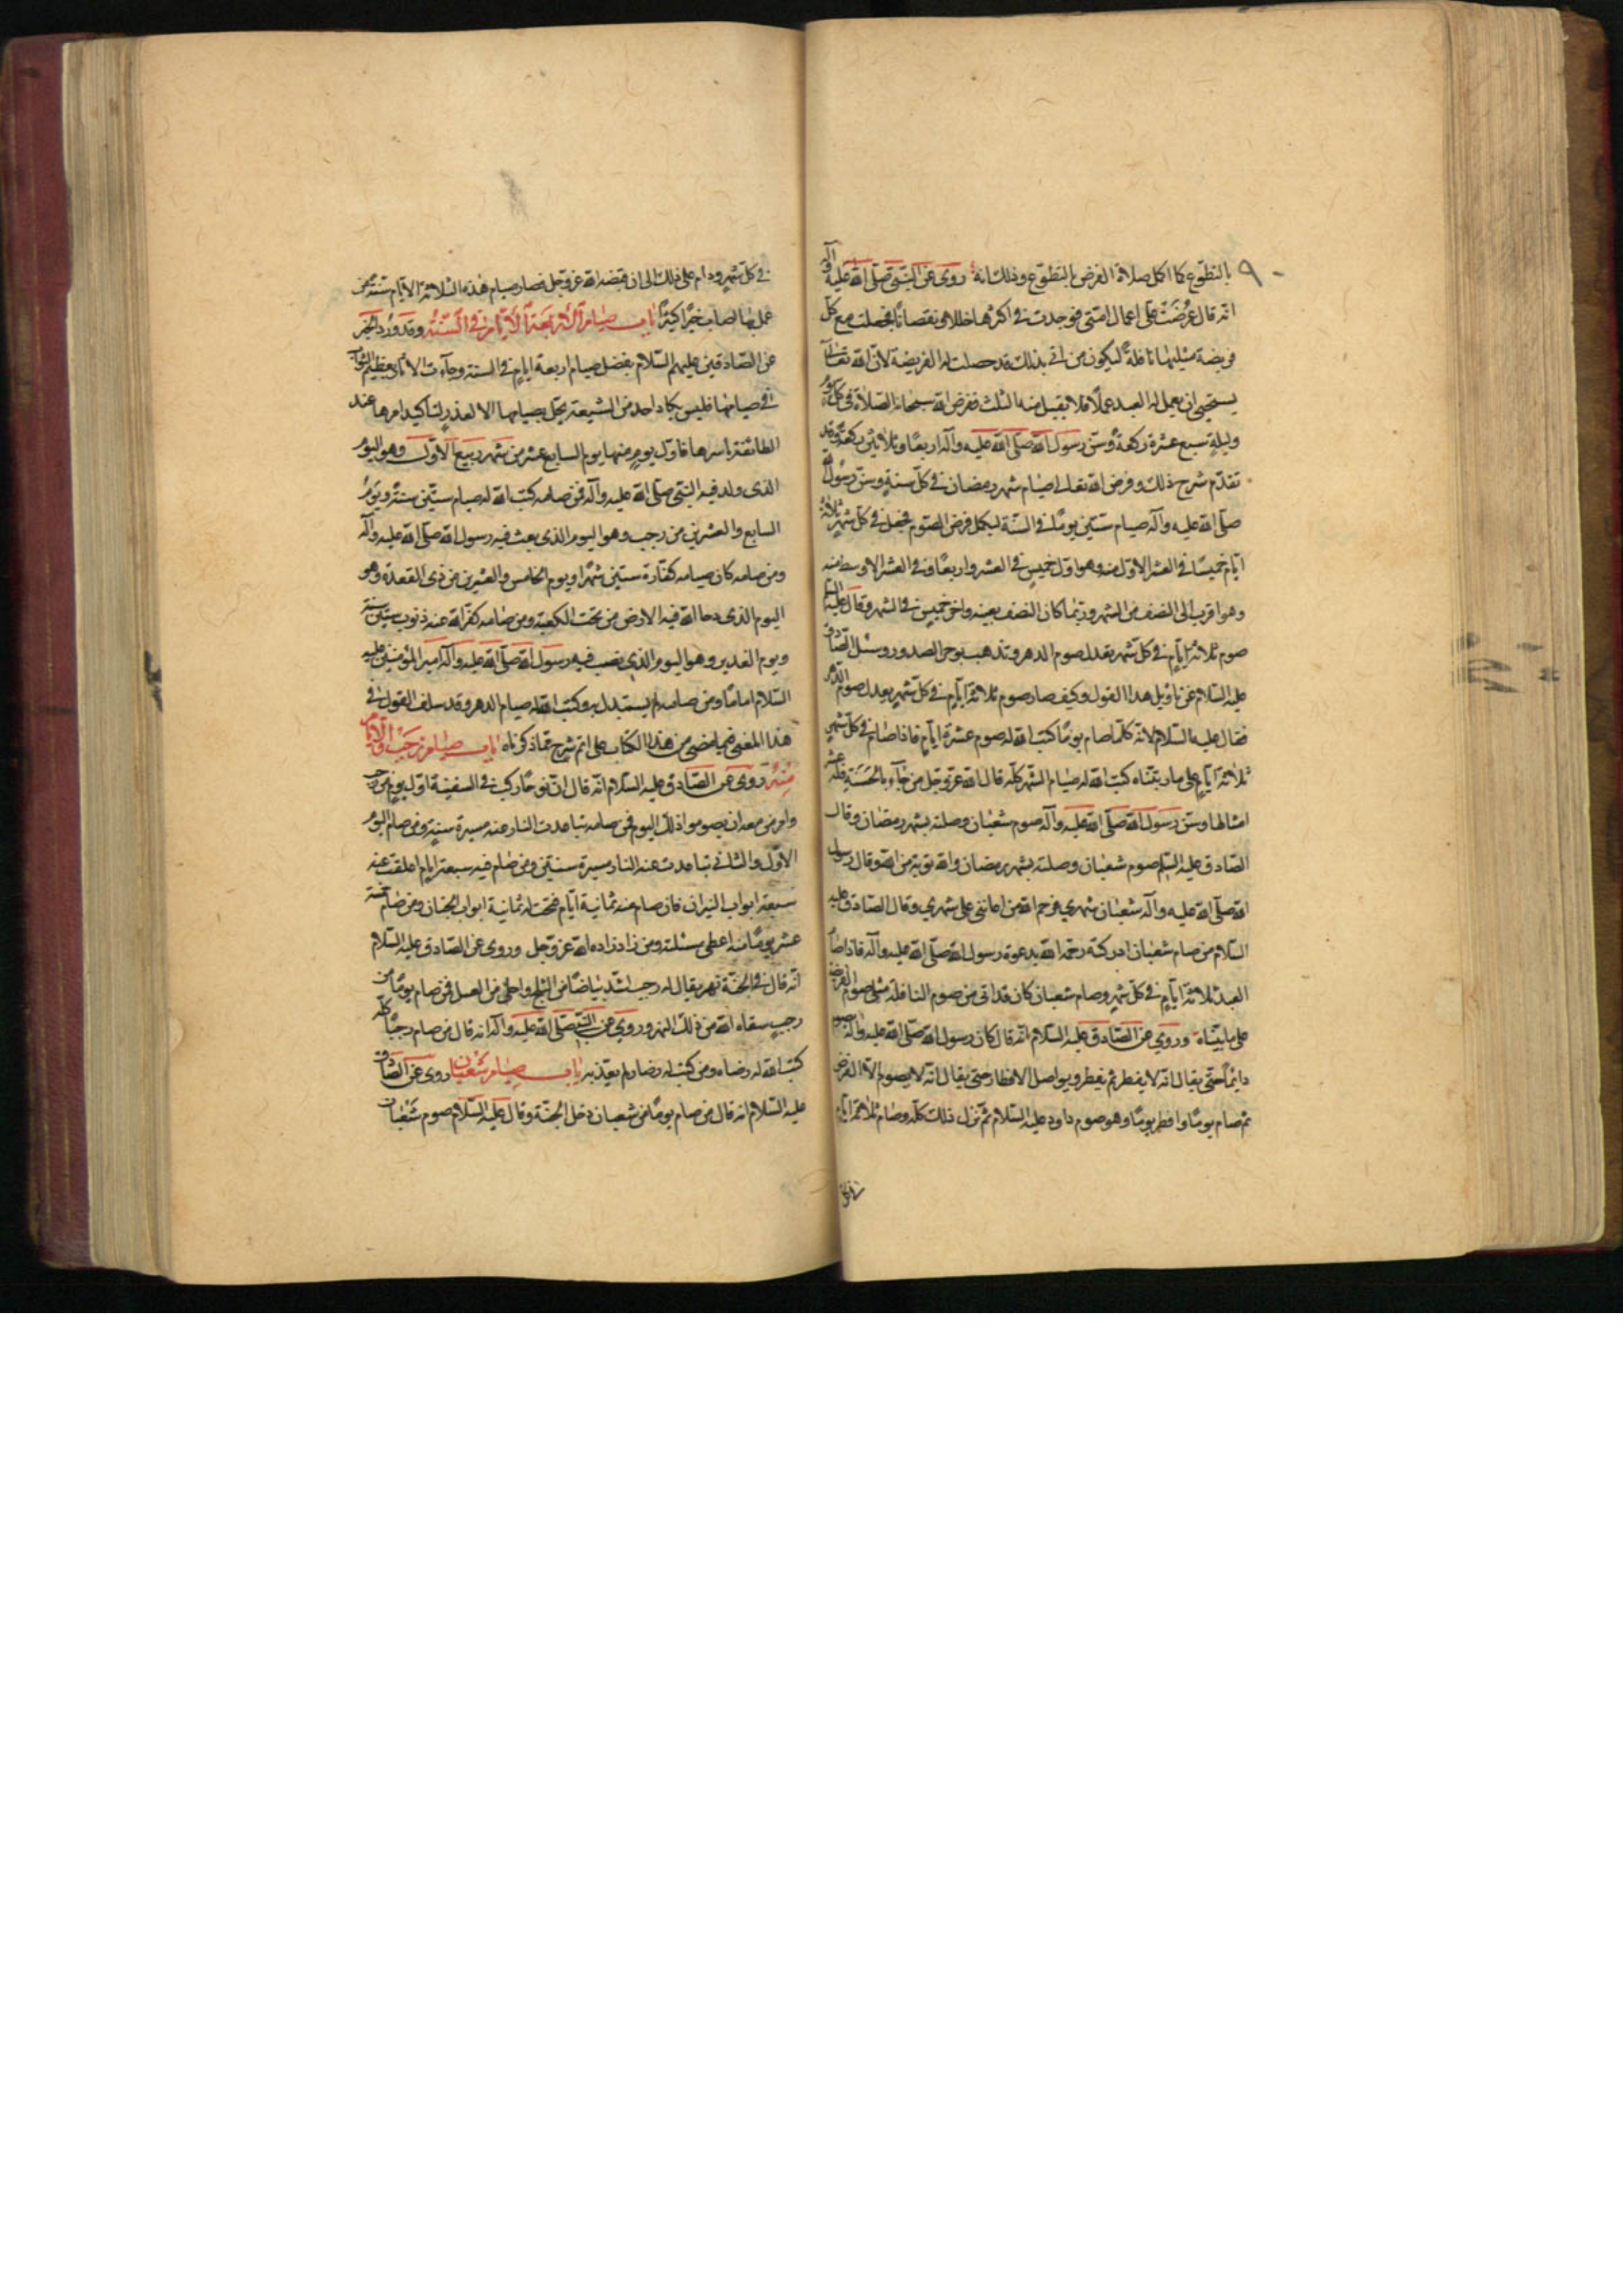 بالتطوع كما اكمل صلاة الفرض بالتطوع وذلك انه روى عن النبي صلى الله عليه وآله
انه قال عرضت على اعمال امتى فوجدت في اكثرها خللا ونقصانا فجعلت مع كل
فريضة مثليها نافلة ليكون من اتى بذلك قد حصلت له الفريضة لان الله تعالى
يستحيى ان يعمل له العبد عملا فلا يقبل منه الثلث ففرض الله سبحانه الصلاة في كل يوم
وليلة سبع عشرة ركعة وسن رسول الله صلى الله عليه وآله اربعا وثلاثين ركعة وقد
تقدم شرح ذلك وفرض الله تعالى صيام شهر رمضان في كل سنة وسن رسول الله
صلى الله عليه وآله صيام ستين يوما في السنة ليكمل فرض الصوم فجعل في كل شهر ثلاثة
ايام خميسا في العشر الاول منه وهو اول خميس في العشر واربعا في العشر الاوسط منه
وهو اقرب الى النصف من الشهر وربما كان النصف بعينه واخر خميس في الشهر وقال عليه السلم
صوم ثلاثة ايام في كل شهر يعدل صوم الدهر وتذهب بوحر الصدور وسئل الصادق
عليه السلام عن تاويل هذا القول وكيف صار صوم ثلاثة ايام في كل شهر يعدل صوم الدهر
فقال عليه السلام لانه كلما صام يوما كتب الله له صوم عشرة ايام فاذا صام في كل شهر
ثلاثة ايام على ما رتبناه كتب الله له صيام الشهر كله قال الله عز وجل من جاء بالحسنة فله عشر
امثالها وسن رسول الله صلى الله عليه وآله صوم شعبان وصلته بشهر رمضان وقال
الصادق عليه السلم صوم شعبان وصلته بشهر رمضان والله توبة من الله وقال رسول
الله صلى الله عليه وآله شعبان شهري فرحم الله من اعانني على شهري وقال الصادق عليه
السلام من صام شعبان ادركته رحمة الله بدعوة رسول الله صلى الله عليه وآله فاذا صام
العبد ثلاثة ايام في كل شهر وصام شعبان كان قد اتى من صوم النافلة مثلى صوم الفرض
على ما بيناه وروي عن الصادق عليه السلام انه قال كان رسول الله صلى الله عليه وآله يصوم
دايما حتى يقال انه لا يفطر ثم يفطر ويواصل الافطار حتى يقال انه لا يصوم الا الفرض
ثم صام يوما وافطر يوما وهو صوم داود عليه السلام ثم نزل ذلك كله وصام ثلاثة ايام
في كل شهر ودام على ذلك الى ان قبضه الله عز وجل فصار صيام هذه الثلاثة الايام سنة من
عمل بها اصاب خيرا كثيرا باب صيام الاربعة الايام في السنة وقد ورد الخبر
عن الصادقين عليهم السلام بفضل صيام اربعة ايام في السنة وجاءت الاثار بعظيم الثواب
في صيامها فليس يكاد احد من الشيعة يخل بصيامها الا لعذر لتأكيد امرها عند
الطائفة باسرها فاول يوم منها يوم السابع عشر من شهر ربيع الاول وهو اليوم
الذى ولد فيه النبي صلى الله عليه وآله فمن صامه كتب الله له صيام ستين سنة ويوم
السابع والعشرين من رجب وهو اليوم الذى بعث فيه رسول الله صلى الله عليه وآله
ومن صامه كان صيامه كفارة ستين شهرا ويوم الخامس والعشرين من ذي القعدة وهو
اليوم الذى دحا الله فيه الارض من تحت الكعبة ومن صامه كفر الله عنه ذنوب ستين سنة
ويوم الغدير وهو اليوم الذي نصب فيه رسول الله صلى الله عليه وآله امير المؤمنين عليه
السلام اماما ومن صامه لم يستبدل به وكتب الله له صيام الدهر وقد سلف القول في
هذا المعنى فيما مضى من هذا الكتاب على اتم شرح مما ذكرناه باب صيام رجب والايام
منه روي عن الصادق عليه السلام انه قال ان نوحا ركب في السفينة اول يوم من رجب
وامر من معه ان يصوموا ذلك اليوم فمن صامه تباعدت النار عنه مسيرة سنة ومن صام اليوم
الاول والثاني تباعدت عنه النار مسيرة سنتين ومن صام فيه سبعة ايام اغلقت عنه
سبعة ابواب النيران فان صام منه ثمانية ايام فتحت له ثمانية ابواب الجنان ومن صام خمسة
عشر يوما منه اعطى مسئلته ومن زاد زاده الله عز وجل وروي عن الصادق عليه السلام
انه قال في الجنة نهر يقال له رجب اشد بياضا من الثلج واحلى من العسل فمن صام يوما من
رجب سقاه الله من ذلك النهر وروي عن النبي صلى الله عليه وآله انه قال من صام رجبا كله
كتب الله له رضاه ومن كتب له رضاه لم يعذبه باب صيام شعبان روى عن الصادق
عليه السلام انه قال من صام يوما من شعبان دخل الجنة وقال عليه السلام صوم شعبان